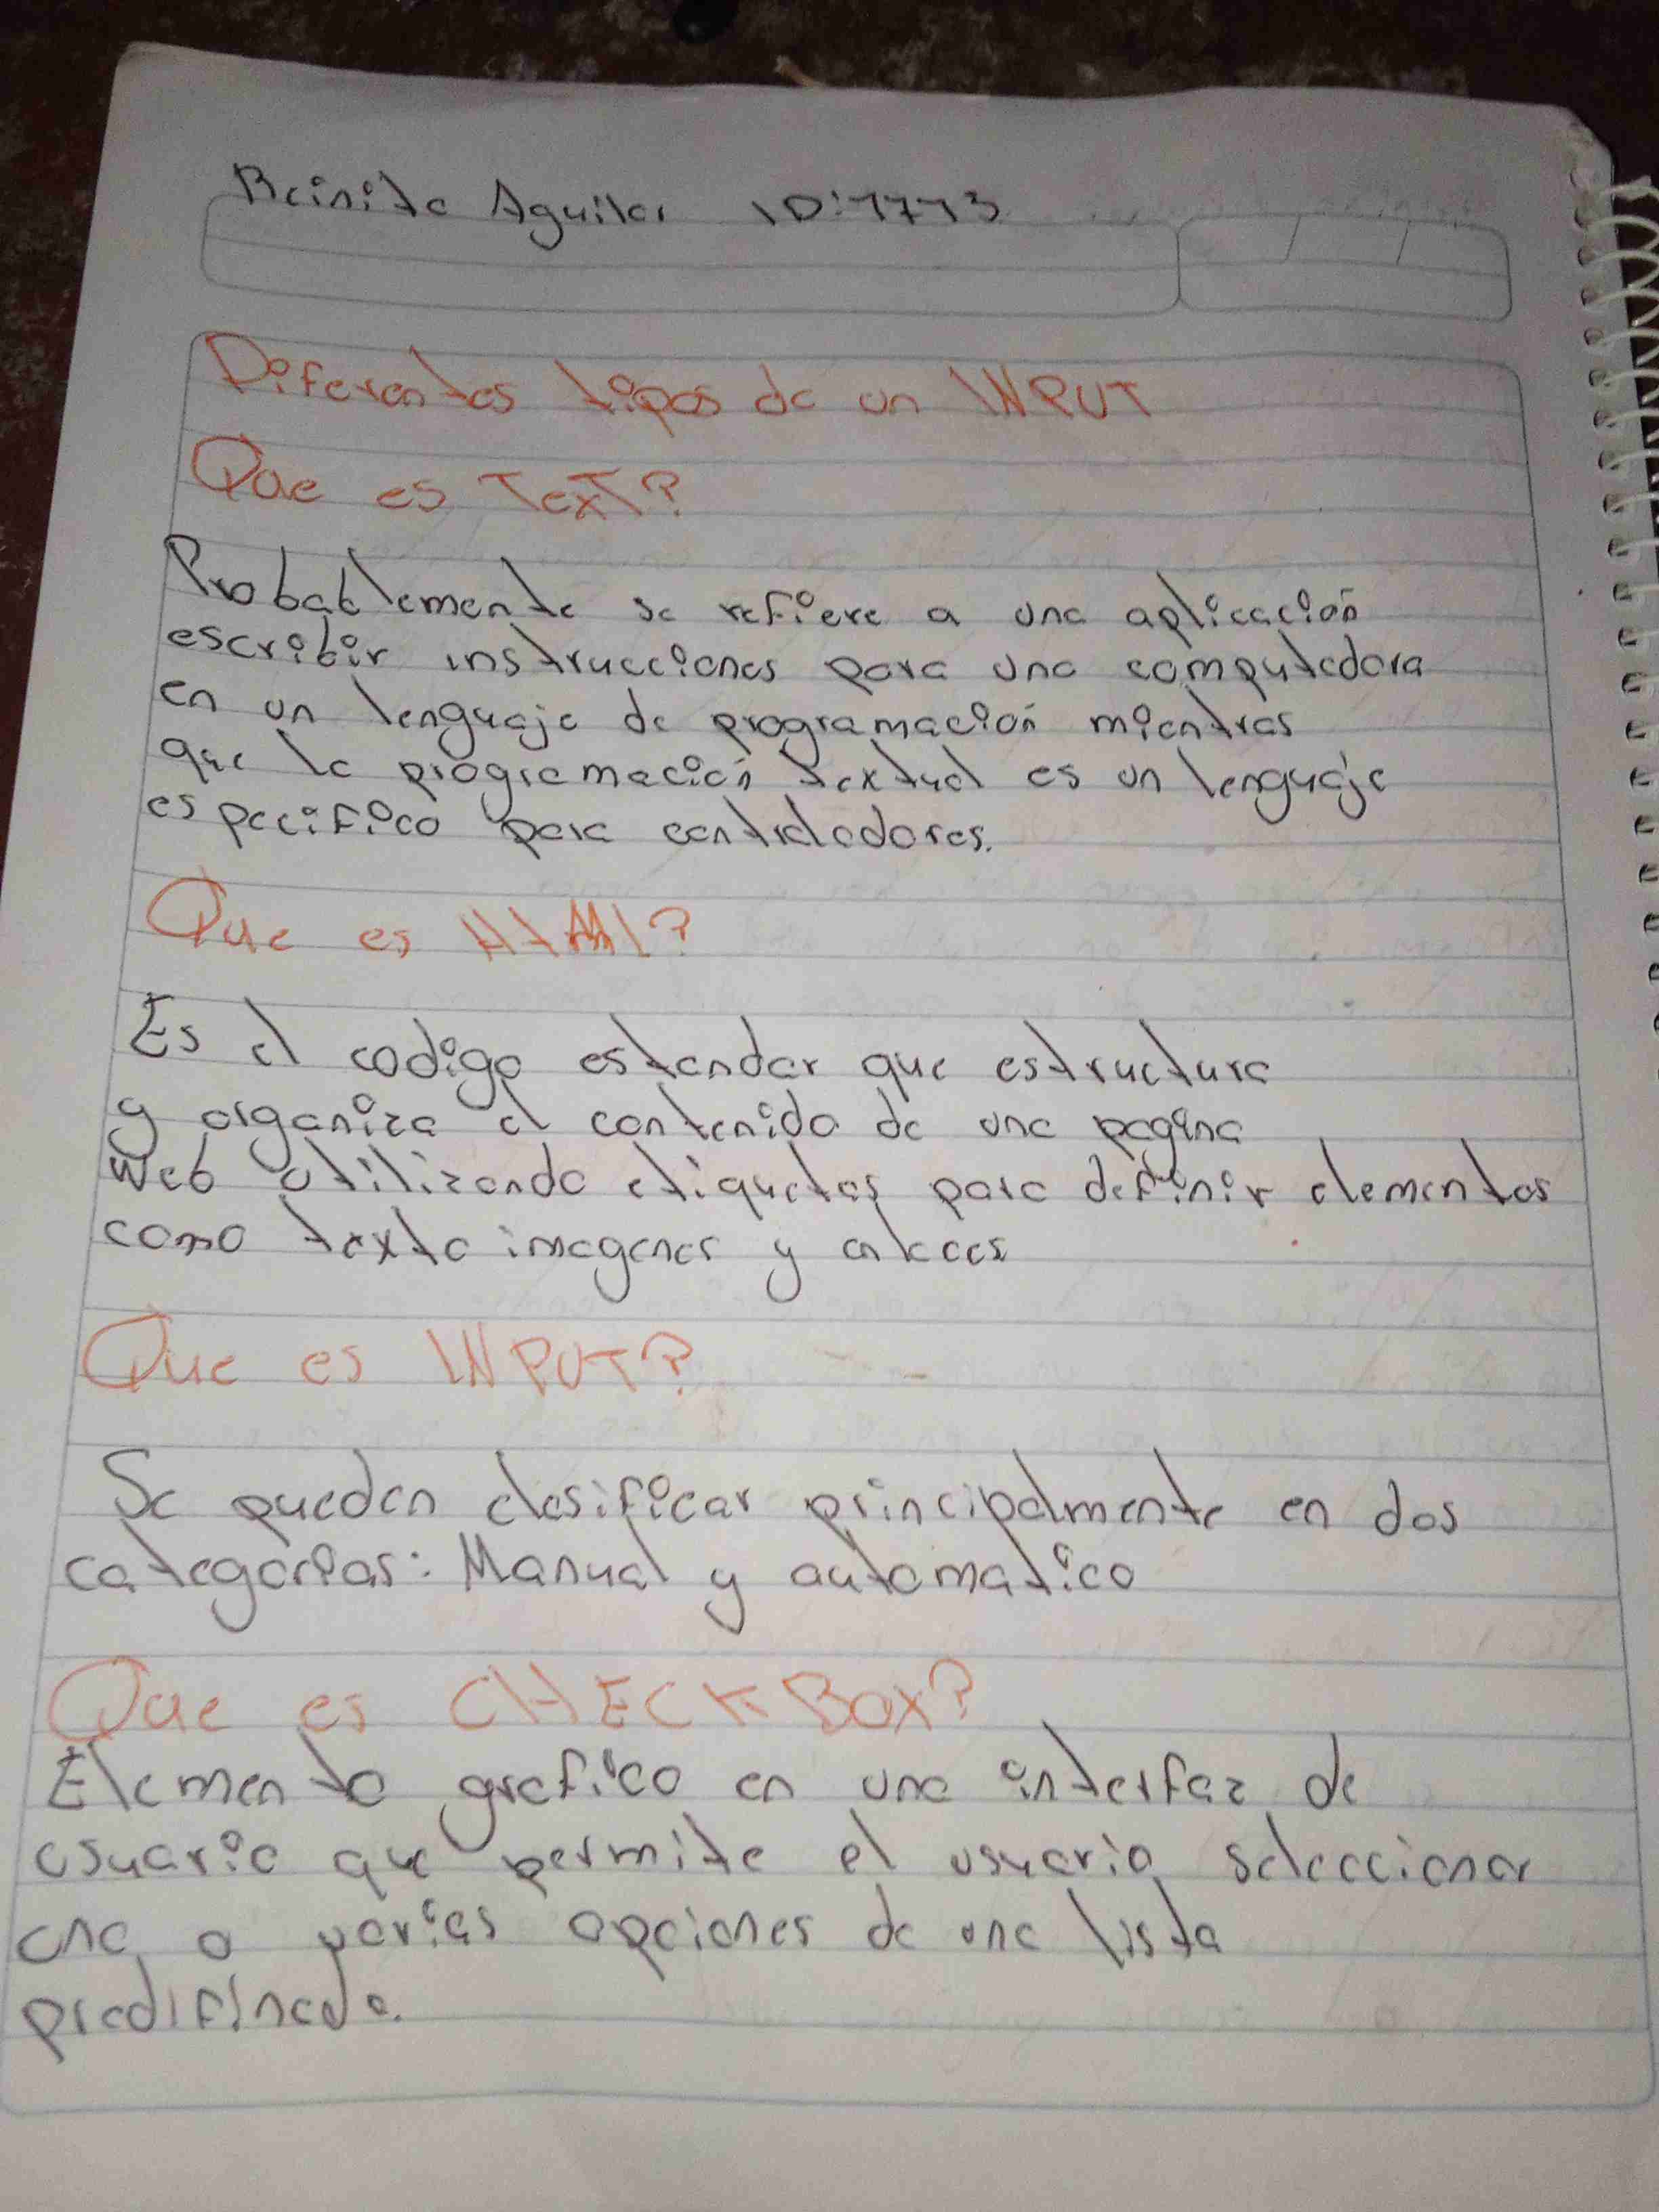 Reinita Aguilar ID:1773
Diferentes tipos de un INPUT
Que es Text?
Probablemente se refiere a una aplicación
escribir instrucciones para una computadora
en un lenguaje de programación mientras
que la programación textual es un lenguaje
especifico para controladores.
Que es Html?
Es el codigo estandar que estructura
y organiza el contenido de una pagina
web utilizando etiquetas para definir elementos
como texto imagenes y enlaces
Que es INPUT?
Se pueden clasificar principalmente en dos
categorias: Manual y automatico
Que es CHECKBOX?
Elemento grafico en una interfaz de
usuario que permite el usuario seleccionar
una o varias opciones de una lista
predifineda.